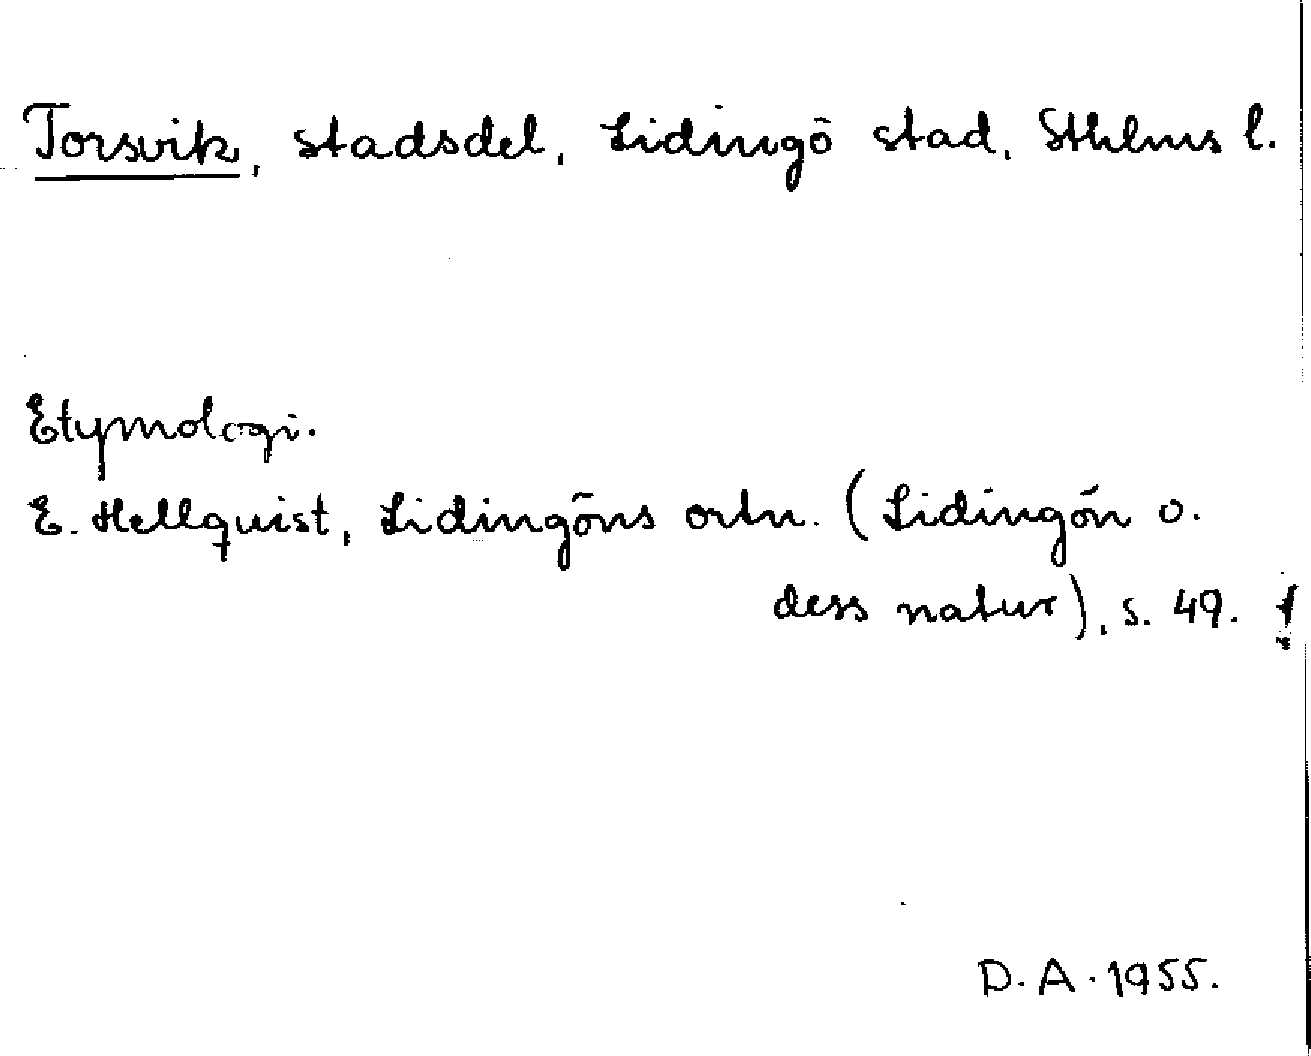 Torsvik, stadsdel, Lidingö stad, Sthlms l.
Etymologi.
E. Hellquist, Lidingöns ortn. (Lidingön o.
dess natur), s. 49. f
D. A. 1955.